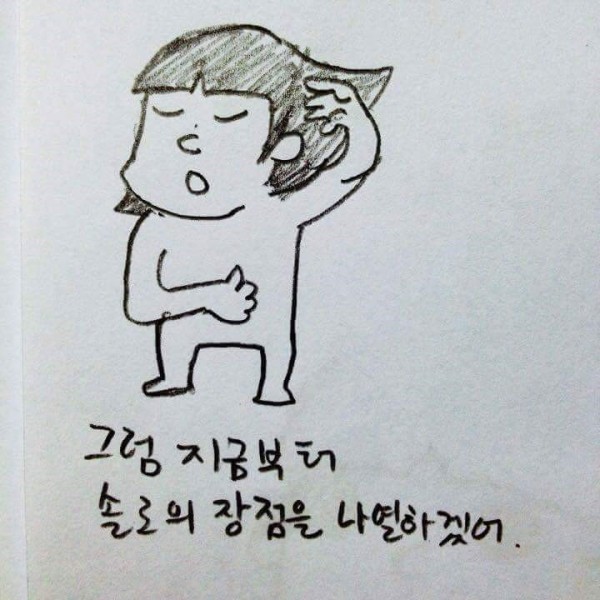 그럼 지금부터
솔로의 장점을 나열하겠어.